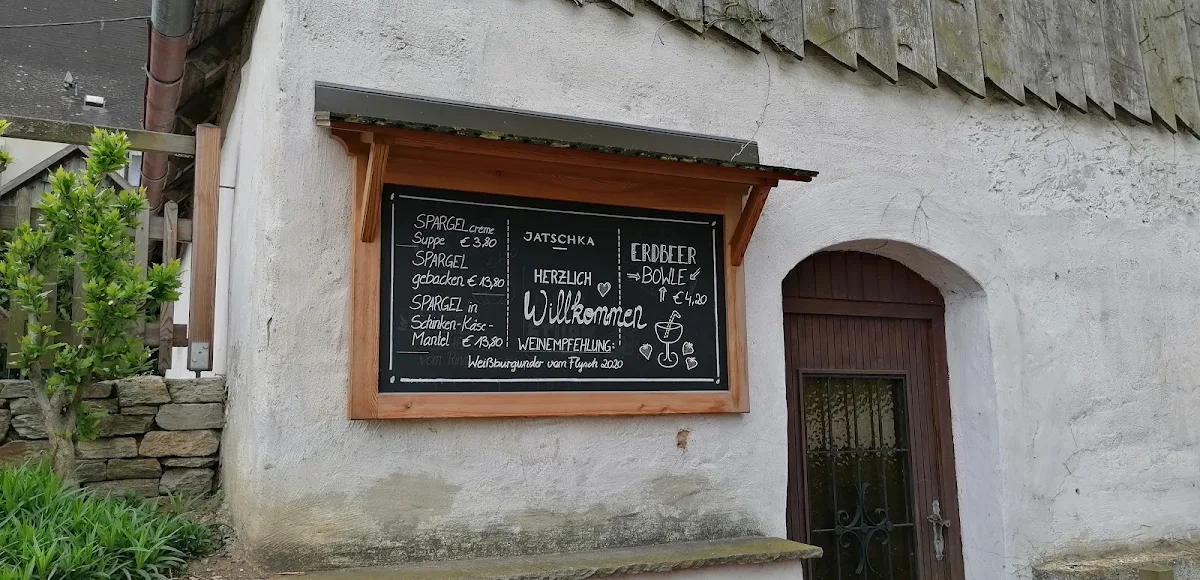 SPARGELcreme
Suppe € 3,80
SPARGEL
gebacken € 13,80
SPARGEL in
Schinken-Käse-
Mantel € 13,80
JATSCHKA
HERZLICH
Willkommen
WEINEMPFEHLUNG:
Weißburgunder vom Flysch 2020
ERDBEER
BOWLE
€ 4,20